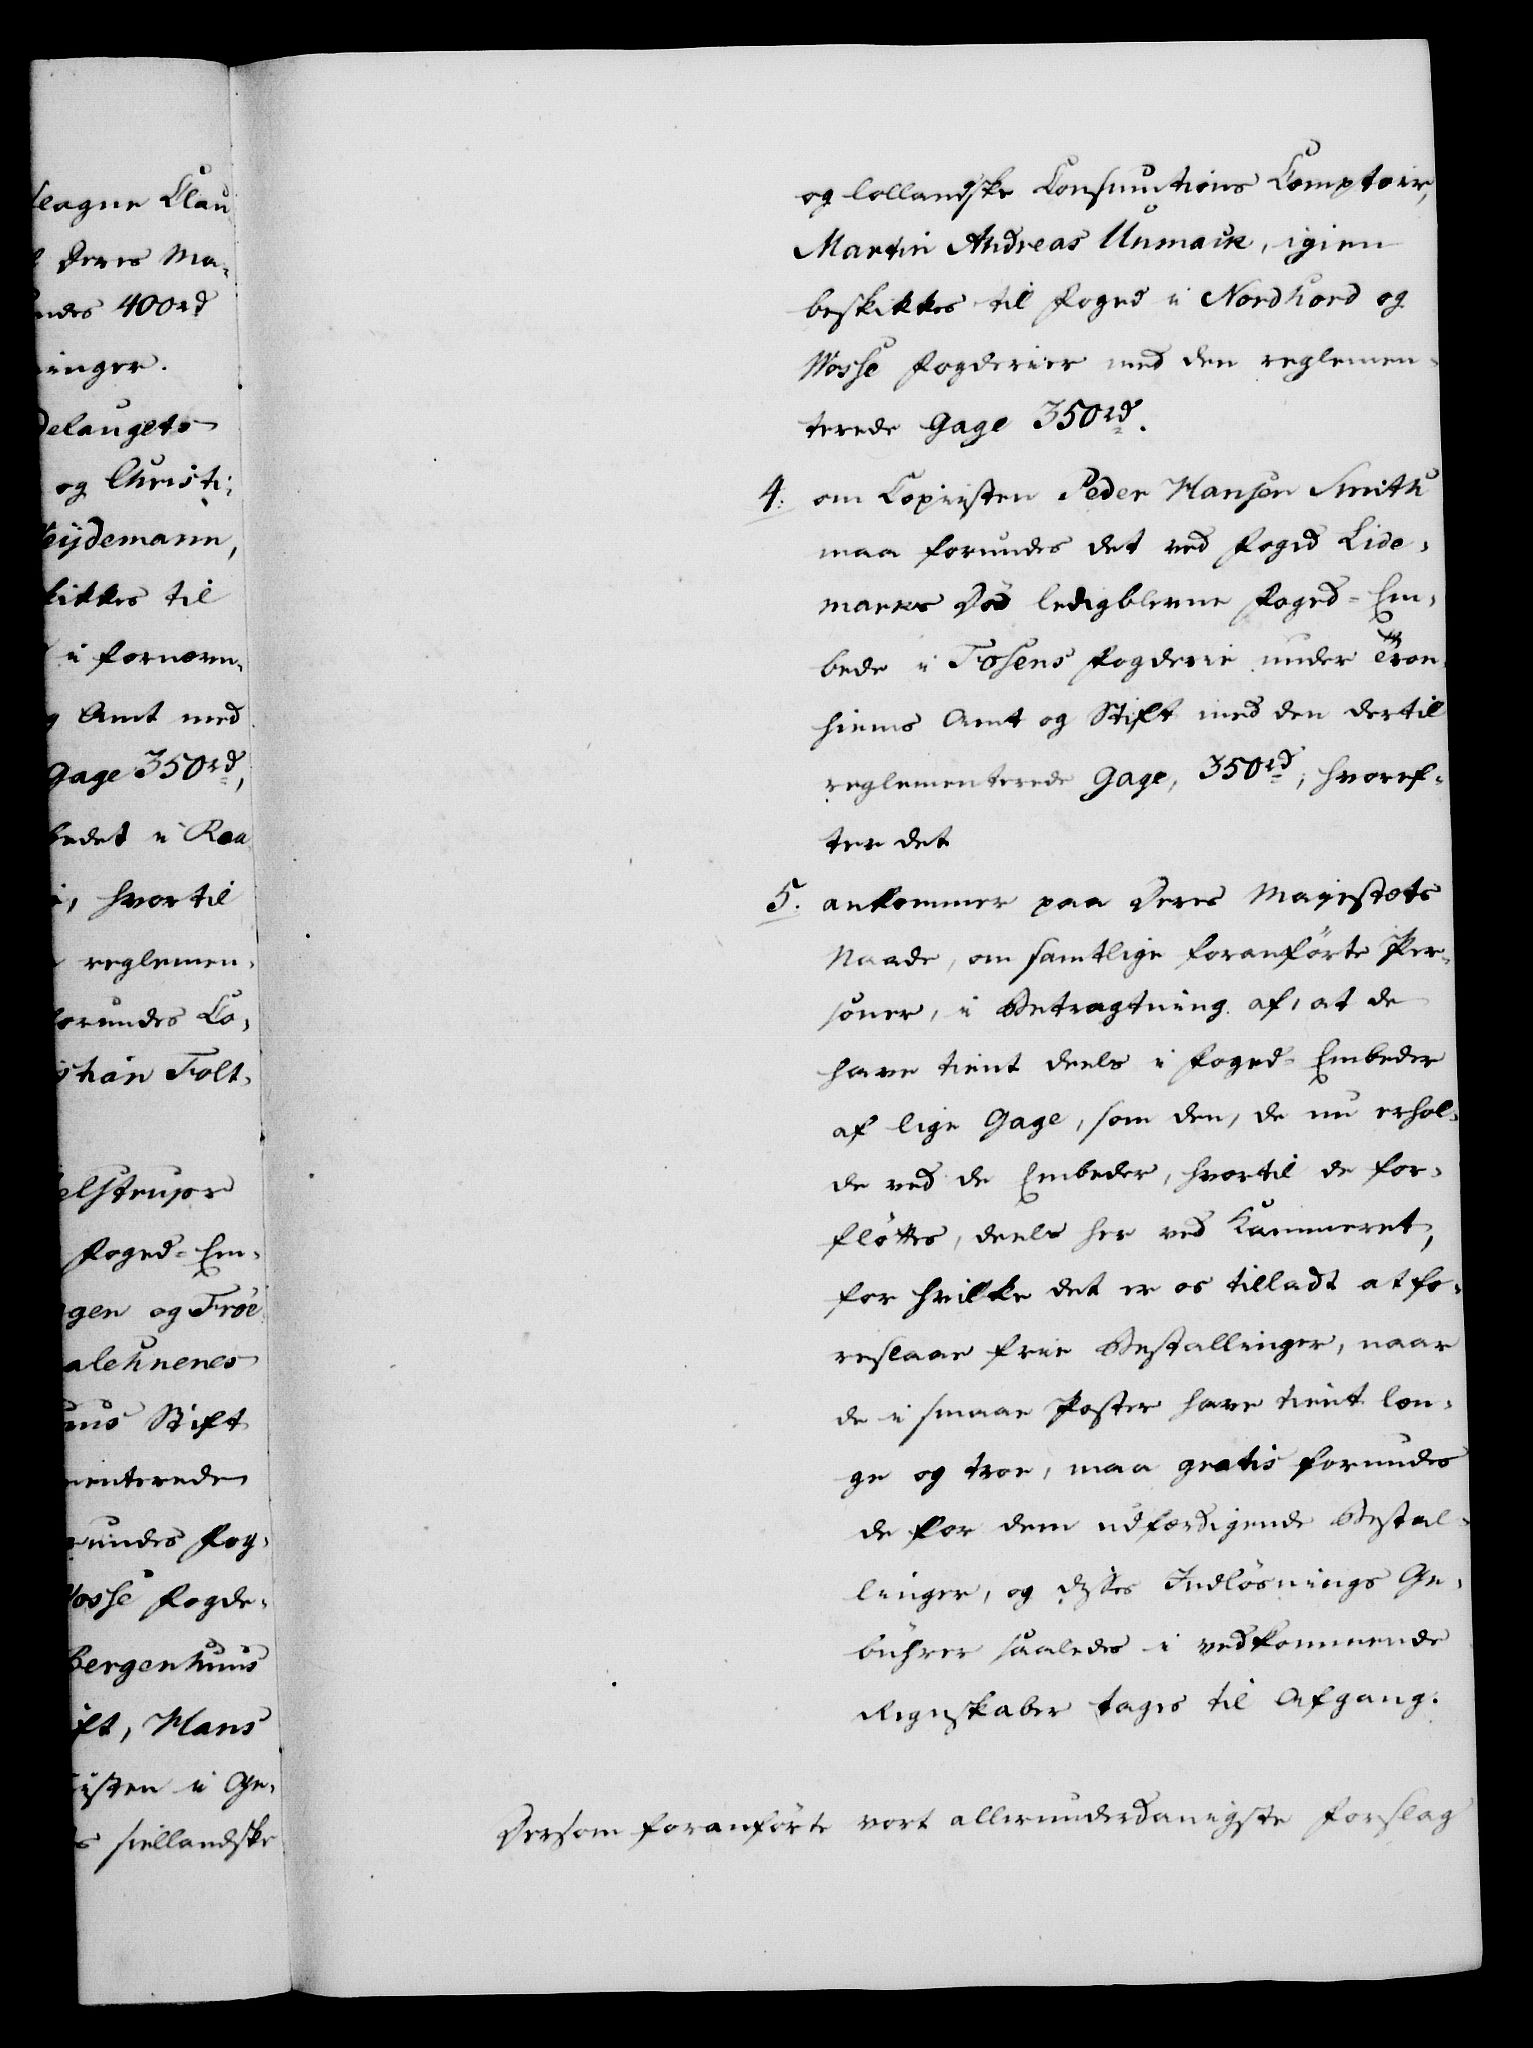 leagne Clau
Deres Ma-
ndes 400rd
inger.
delaugets
og Christi-
eÿdemann,
kikkes til
i fornævn-
Amt med
Gage 350rd,
bedet i Raa
i, hvortil
reglemen-
forundes Co-
istian Folt-
elstrups
Foged-Em-
gen og Frøe
alehnenes
uus Stift
menterede
rundes Fog-
Vosse Fogde-
Bergenhuus
ift, Hans
isten i Ge-
s siellandske
og lollandske Consumtions Comptoir,
Martin Andreas Unmack, igien
beskikkes til Foged i Nordhord og
Wosse Fogderier med den reglemen-
terede Gage 350rd.
4. om Copiisten Peder Hansen Smith
maa forundes det ved Foged Lide-
marks Død ledigblevne Foged-Em-
bede i Fosens Fogderie under Tron-
hiems Amt og Stift med den dertil
reglementerede Gage, 350rd; hvoref-
ter det
5. ankommer paa Deres Majestæts
Naade, om samtlige foranførte Per-
soner, i Betragtning af, at de
have tient deels i Foged-Embeder
af lige Gage, som den, de nu erhol-
de ved de Embeder, hvortil de for-
fløttes, deels her ved Kammeret,
for hvilke det er os tilladt at fo-
reslaae frie Bestallinger, naar
de i smaae Poster have tient læn-
ge og troe, maa gratis forundes
de for dem udfærdigende Bestal-
linger, og disses Indløsnings Ge-
bührer saaledes i vedkommende
Regnskaber tages til Afgang.
Dersom foranførte vort allerunderdanigste Forslag